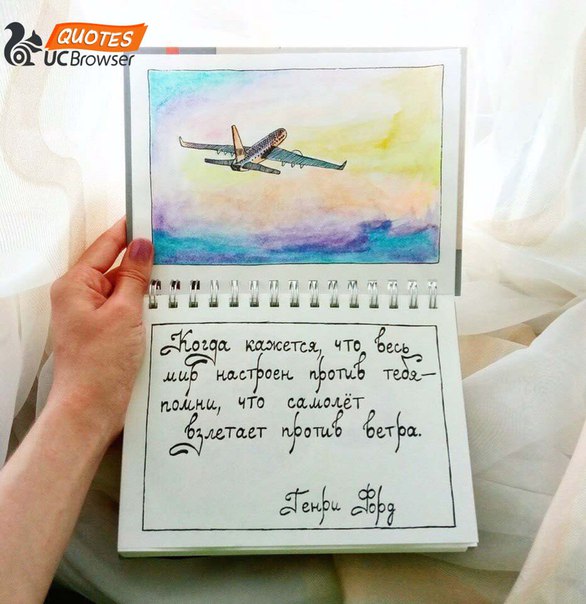 QUOTES
UCBrowser
Когда кажется, что весь
мир настроен против тебя—
помни, что самолёт
взлетает против ветра.
Генри Форд